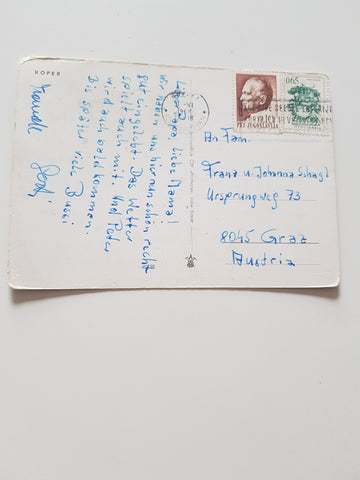 KOPER
Lieber Papa, liebe Mama!
Wir haben uns hier schon recht
gut eingelebt. Das Wetter
spielt auch mit. Und Peter
wird auch bald kommen.
Bis später viele Bussi
0,65
JUGOSLAVIJA
An Fam.
Franz u. Johanna Schagl
Ursprungweg 73
8045 Graz
Austria